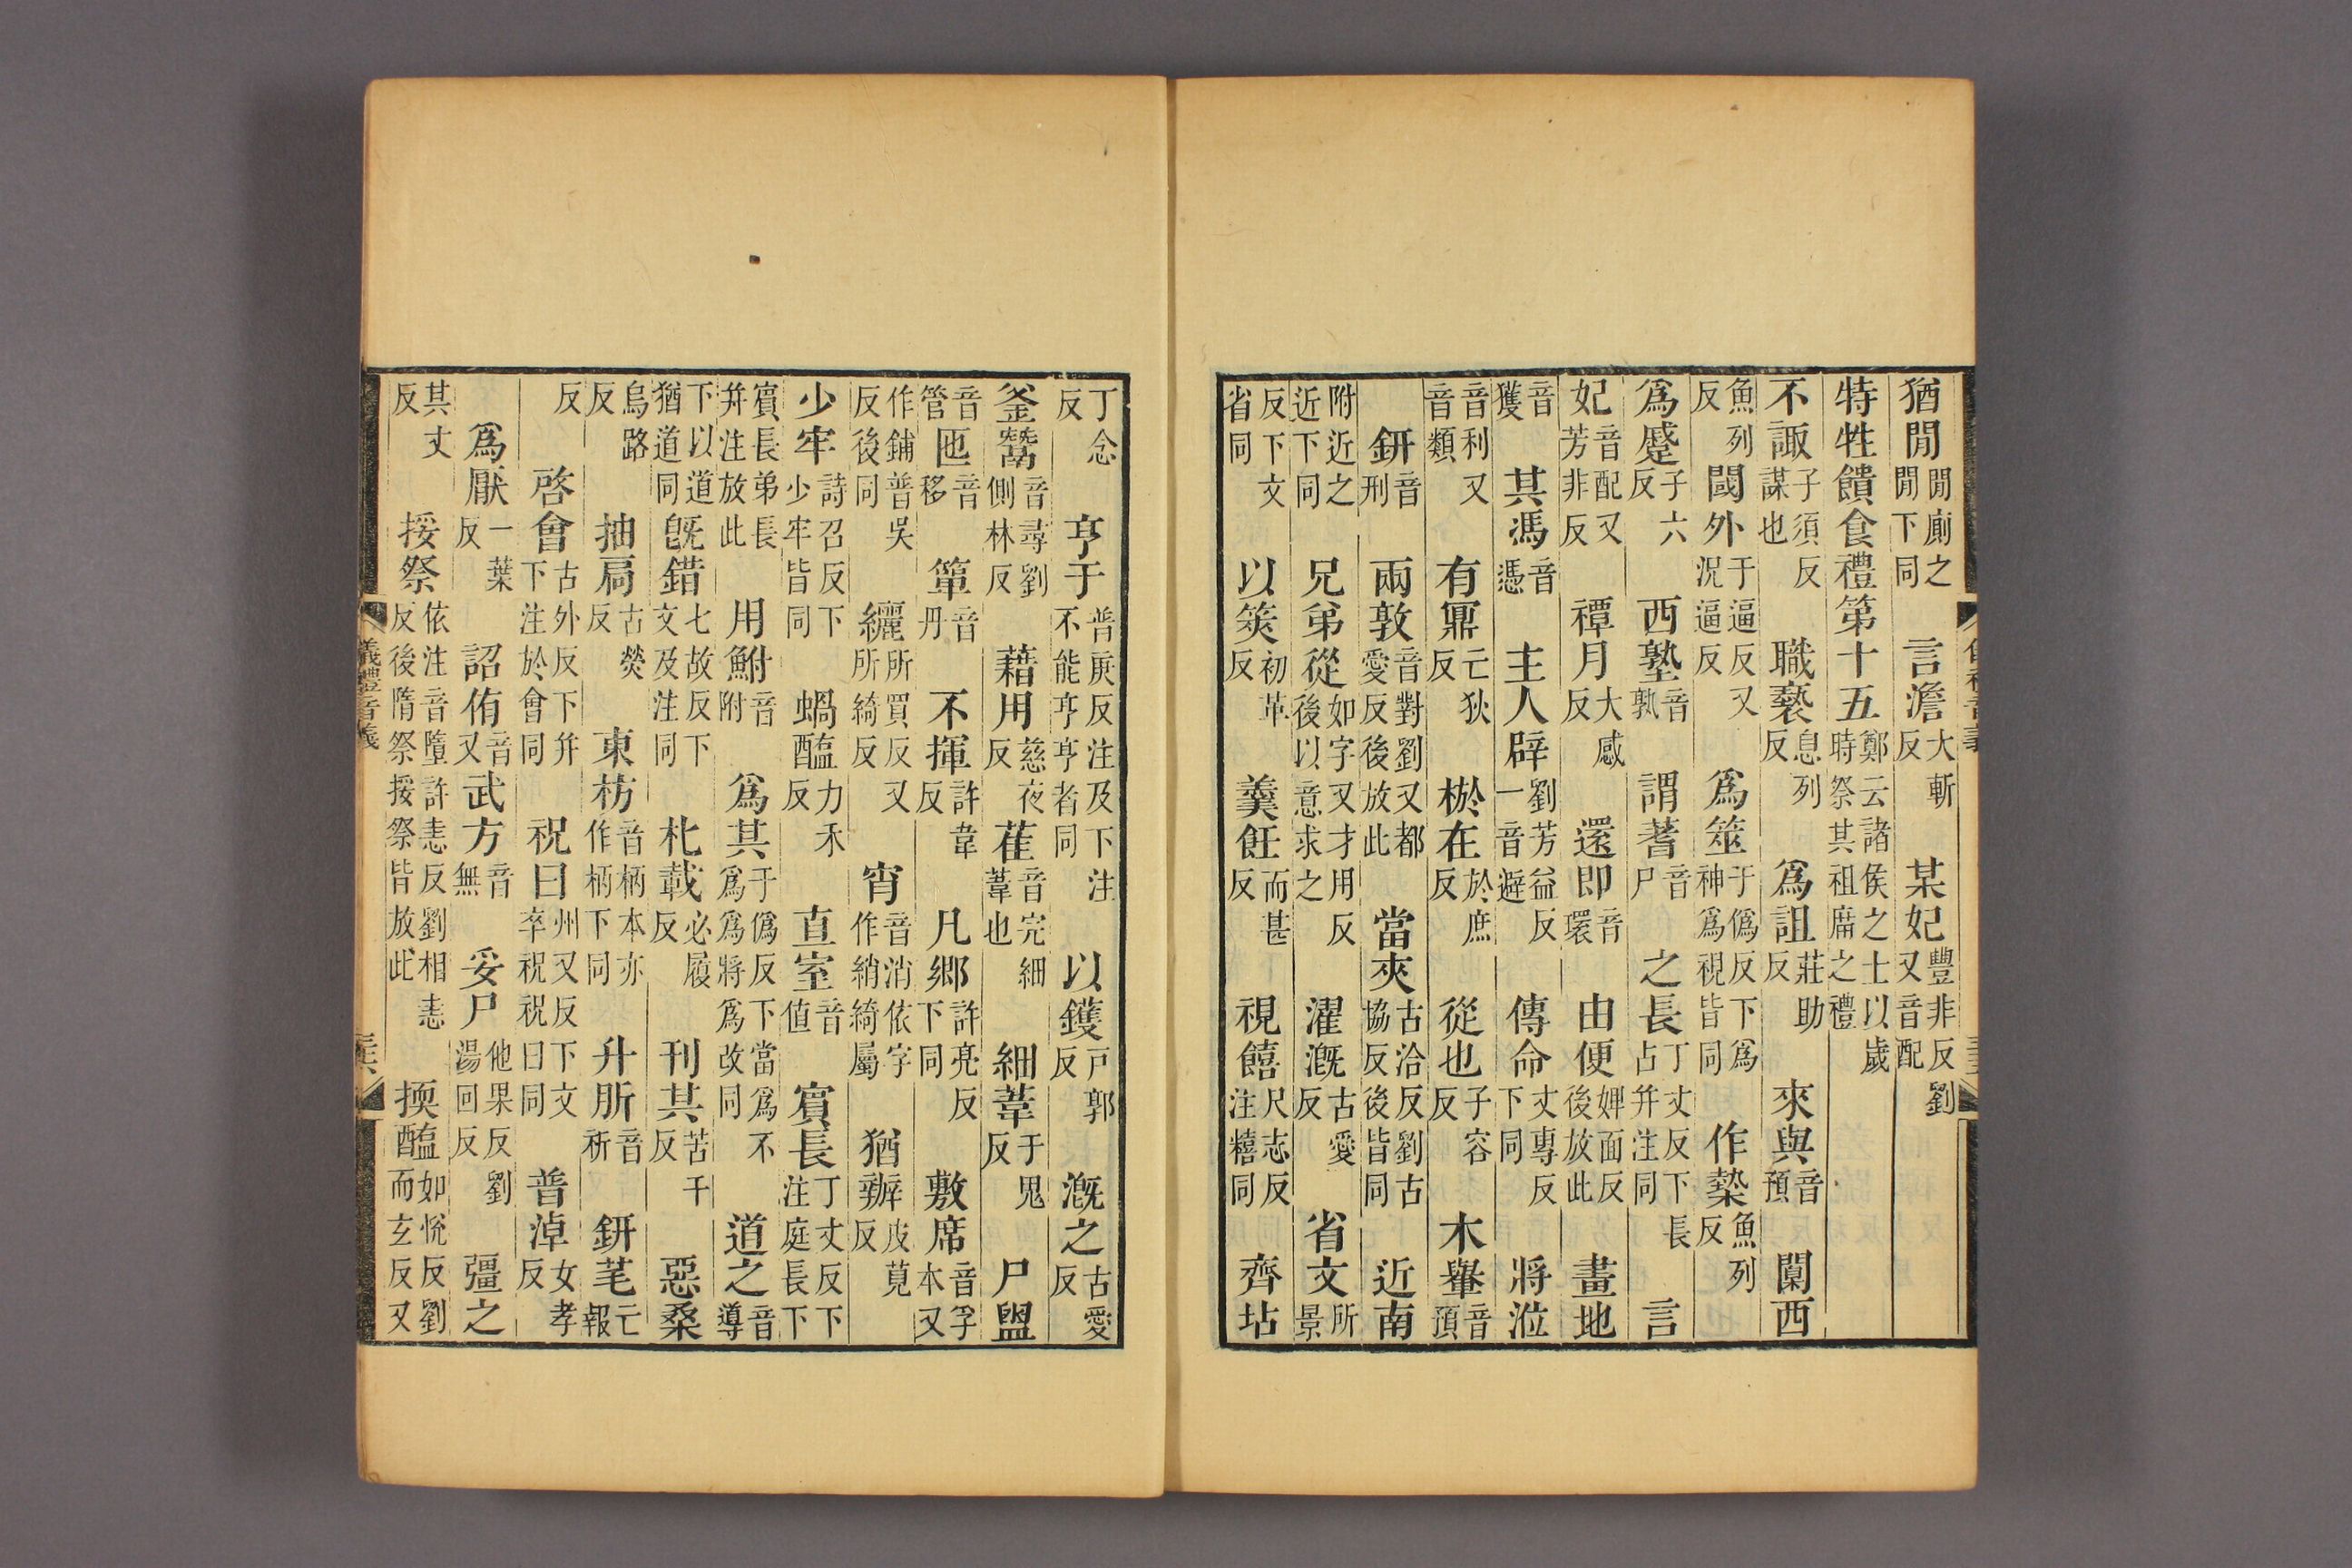 猶閒閒廁之閒下同言澹大斬反某妃豐非反劉又音配
特牲饋食禮第十五鄭云諸侯之士以歲時祭其祖席之禮
不諏子須反謀也職褻息列反爲詛莊助反來與音預闑西
魚列反閾外于逼反又況逼反爲筮于僞反下爲神爲視皆同作槷魚列反
爲蹙子六反西塾音孰謂蓍音尸之長丁丈反下長占并注同言
妃音配又芳非反禫月大感反還即音環由便婢面反後放此畫地
音獲其馮音憑主人辟劉芳益反一音避傳命丈專反下同將涖
音利又音類有鼏亡狄反棜在於庶反從也子容反木轝音預
鈃音刑兩敦音對劉又都愛反後放此當夾古洽反劉古協反後皆同近南
附近之近下同兄弟從如字又才用反後以意求之濯漑古愛反省文所景
反下文省同以筴初革反羹飪而甚反視饎尺志反注糦同齊坫
丁念反亨于普庚反注及下注不能亨亨者同以鑊戶郭反漑之古愛反
釜鬵音尋劉側林反藉用慈夜反萑音完細葦也細葦于鬼反尸盥
音管匜音移簞音丹不揮許韋反凡鄉許亮反下同敷席音孚本又
作鋪普吳反後同纚所買反又所綺反宵音消依字作綃綺屬猶辦皮莧反
少牢詩召反下少牢皆同蝸醢力禾反直室音值賓長丁丈反下注庭長下
賓長弟長并注放此用鮒音附爲其于僞反下當爲不爲爲將爲改同道之音導
下以道猶道同旣錯七故反下文及注同朼載必履反刊其苦干反惡桑
烏路反抽扃古熒反東枋音柄本亦作柄下同升肵音祈鈃芼亡報
反啓會古外反下并注於會同祝曰州又反下文卒祝祝曰同普淖女孝反
爲厭一葉反詔侑音又武方音無妥尸他果反劉湯回反彊之
其丈反挼祭依注音墮許恚反劉相恚反後隋祭挼祭皆放此㨎醢如悅反劉而玄反又
儀禮音義